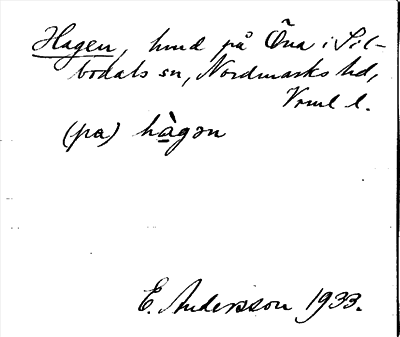 Hagen, hmd på Õna i Sil-
bodals sn, Nordmarks hd,
Vrml l.
(pa) hàgən
E. Andersson 1933.